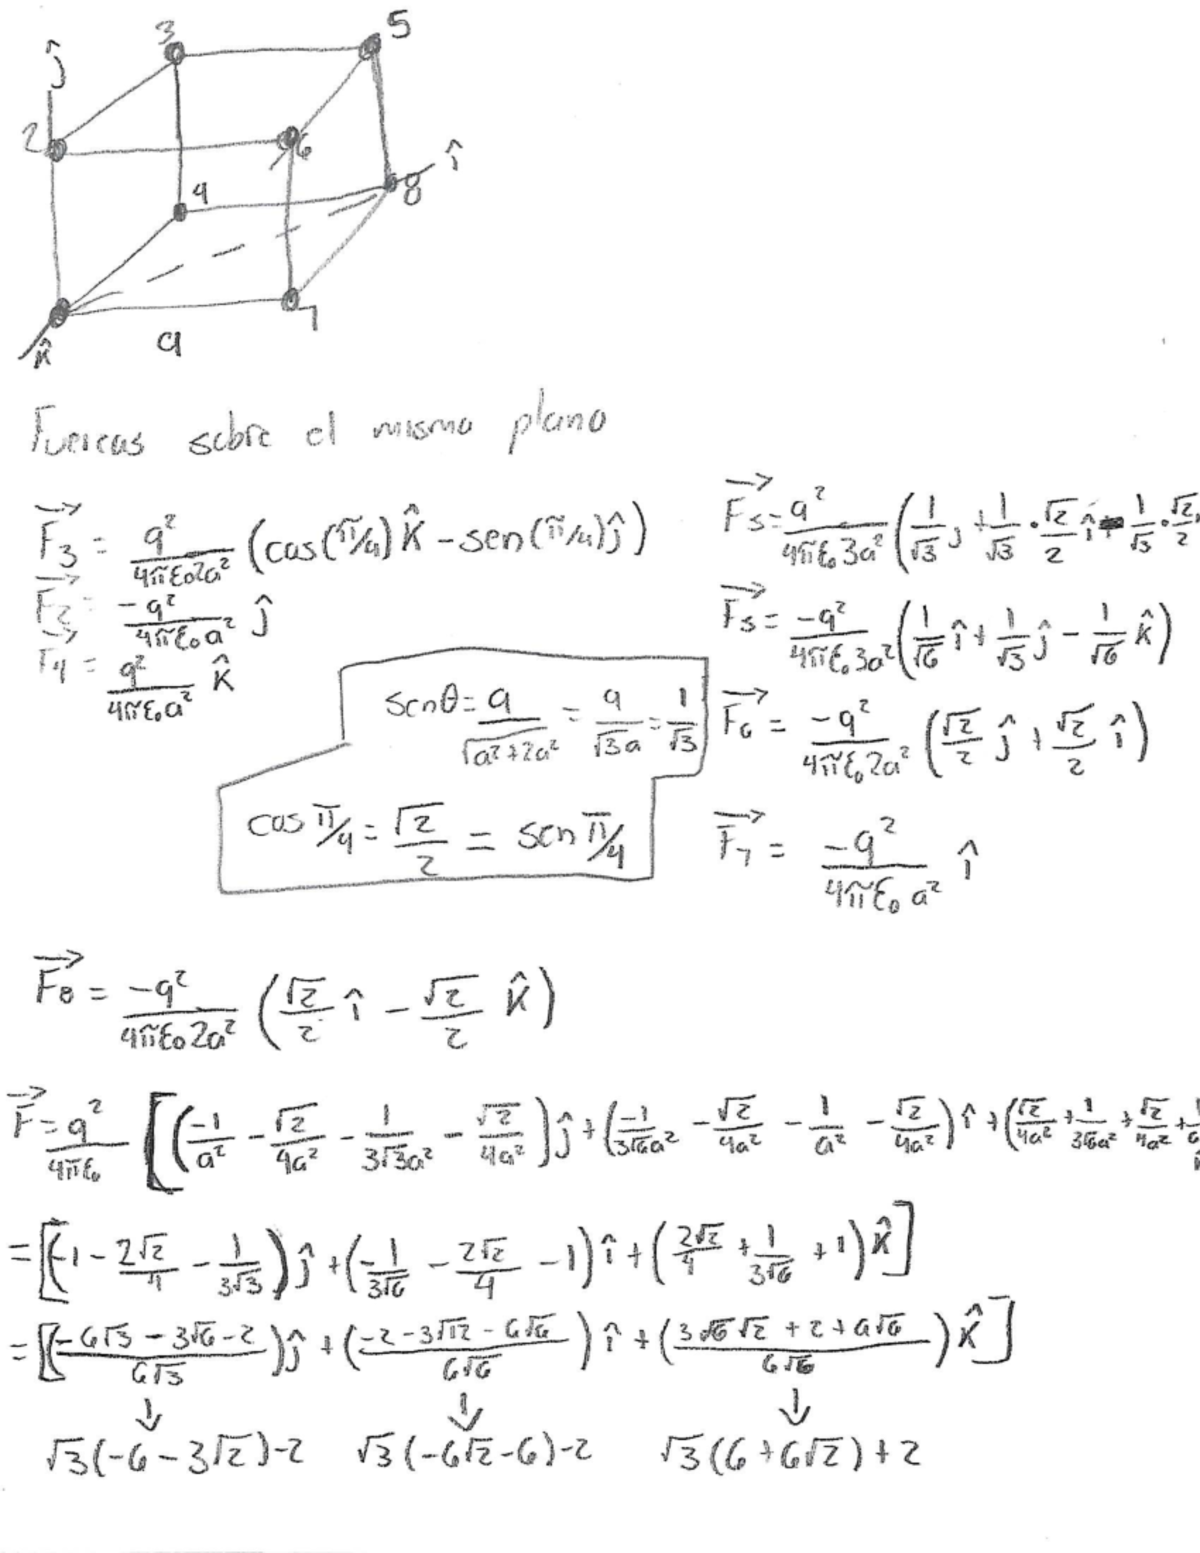 3
5
ĵ
2
6
î
4
8
7
k̂
a
Fuerzas sobre el mismo plano
F⃗₃ = q²/(4πε₀2a²) (cos(π/4) k̂ - sen(π/4) ĵ)
F⃗₂ = -q²/(4πε₀a²) ĵ
F⃗₄ = q²/(4πε₀a²) k̂
senθ = a/√(a²+2a²) = a/(√3a) = 1/√3
cos π/4 = √2/2 = sen π/4
F⃗₅ = q²/(4πε₀3a²) (1/√3 ĵ + 1/√3 · √2/2 î - 1/√3 · √2/2
F⃗₅ = -q²/(4πε₀3a²) (1/√6 î + 1/√3 ĵ - 1/√6 k̂)
F⃗₆ = -q²/(4πε₀2a²) (√2/2 ĵ + √2/2 î)
F⃗₇ = -q²/(4πε₀a²) î
F⃗₈ = -q²/(4πε₀2a²) (√2/2 î - √2/2 k̂)
F⃗ = q²/(4πε₀) [(-1/a² - √2/4a² - 1/3√3a² - √2/4a²) ĵ + (-1/3√6a² - √2/4a² - 1/a² - √2/4a²) î + (√2/4a² + 1/3√6a² + √2/4a² + 1/a²
= [(-1 - 2√2/4 - 1/3√3) ĵ + (-1/3√6 - 2√2/4 - 1) î + (2√2/4 + 1/3√6 + 1) k̂]
= [((-6√3 - 3√6 - 2)/6√3) ĵ + ((-2 - 3√12 - 6√6)/6√6) î + ((3√6√2 + 2 + 6√6)/6√6) k̂]
↓ ↓ ↓
√3(-6-3√2)-2 √3(-6√2-6)-2 √3(6+6√2)+2